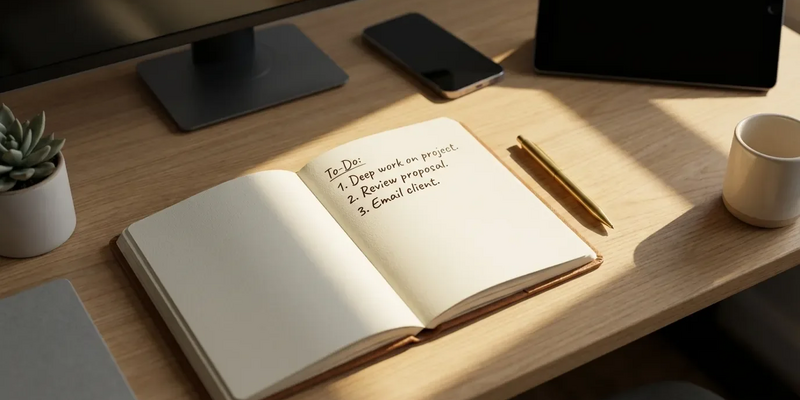 To-Do:
1. Deep work on project.
2. Review proposal.
3. Email client.